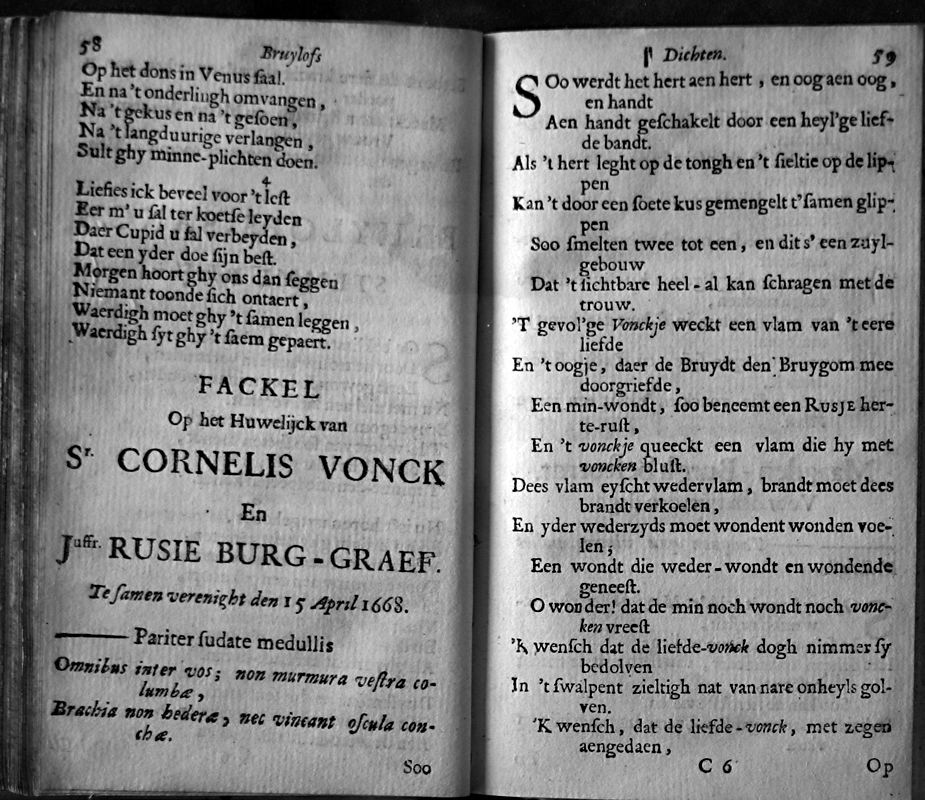 58
Bruylofs
Op het dons in Venus ſaal.
En na 't onderlingh omvangen,
Na 't gekus en na 't geſoen,
Na 't langduurige verlangen,
Sult ghy minne-plichten doen.
4
Liefies ick beveel voor 't leſt
Eer m' u ſal ter koetſe leyden
Daer Cupid u ſal verbeyden,
Dat een yder doe ſijn beſt.
Morgen hoort ghy ons dan ſeggen
Niemant toonde ſich ontaert,
Waerdigh moet ghy 't ſamen leggen,
Waerdigh ſyt ghy 't ſaem gepaert.
FACKEL
Op het Huwelijck van
Sr. CORNELIS VONCK
En
Juffr. RUSIE BURG-GRAEF.
Te ſamen verenight den 15 April 1668.
Pariter ſudate medullis
Omnibus inter vos; non murmura veſtra co-
lumbæ,
Brachia non hederæ, nec vincant oſcula con-
chæ.
Soo
Dichten.
59
Soo werdt het hert aen hert, en oog aen oog,
en handt
Aen handt geſchakelt door een heyl'ge lief-
de bandt.
Als 't hert leght op de tongh en 't ſieltie op de lip-
pen
Kan 't door een ſoete kus gemengelt t'ſamen glip-
pen
Soo ſmelten twee tot een, en dit s' een zuyl-
gebouw
Dat 't ſichtbare heel-al kan ſchragen met de
trouw.
'T gevol'ge Vonckje weckt een vlam van 't eere
liefde
En 't oogje, daer de Bruydt den Bruygom mee
doorgriefde,
Een min-wondt, ſoo beneemt een RUSJE her-
te-ruſt,
En 't vonckje queeckt een vlam die hy met
voncken bluſt.
Dees vlam eyſcht wedervlam, brandt moet dees
brandt verkoelen,
En yder wederzyds moet wondent wonden voe-
len;
Een wondt die weder-wondt en wondende
geneeſt.
O wonder! dat de min noch wondt noch vonc-
ken vreeſt
'K wenſch dat de liefde-vonck dogh nimmer ſy
bedolven
In 't ſwalpent zieltigh nat van nare onheyls gol-
ven.
'K wenſch, dat de liefde-vonck, met zegen
aengedaen,
C 6
Op